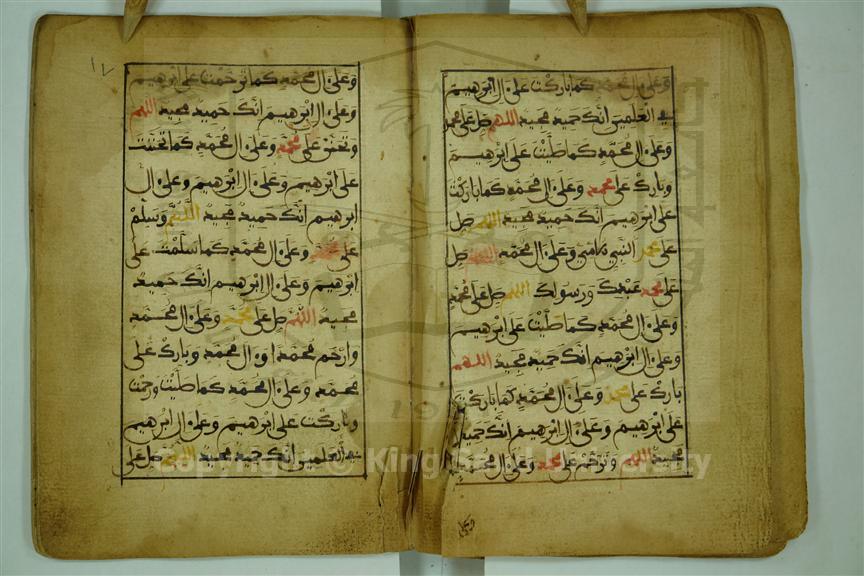 وعلى ال محمد كما باركت على ال ابرهيم
في العلمين انك حميد مجيد اللهم صل على محمد
وعلى ال محمد كما صليت على ابرهيم
وبارك على محمد وعلى ال محمد كما باركت
على ابرهيم انك حميد مجيد اللهم صل
على محمد النبي الامي وعلى ال محمد اللهم صل
على محمد عبدك ورسولك اللهم صل على محمد
وعلى ال محمد كما صليت على ابرهيم
وعلى ال ابرهيم انك حميد مجيد اللهم
بارك على محمد وعلى ال محمد كما باركت
على ابرهيم وعلى ال ابرهيم انك حميد
مجيد اللهم وترحم على محمد وعلى ال محمد
١٧
وعلى ال محمد كما ترحمت على ابرهيم
وعلى ال ابرهيم انك حميد مجيد اللهم
وتحنن على محمد وعلى ال محمد كما تحننت
على ابرهيم وعلى ال ابرهيم وعلى ال
ابرهيم انك حميد مجيد اللهم وسلم
على محمد وعلى ال محمد كما سلمت على
ابرهيم وعلى ال ابرهيم انك حميد
مجيد اللهم صل على محمد وعلى ال محمد
وارحم محمدا وال محمد وبارك على
محمد وعلى ال محمد كما صليت ورحمت
وباركت على ابرهيم وعلى ال ابرهيم
في العلمين انك حميد مجيد اللهم صل على
Copyright © King Saud University